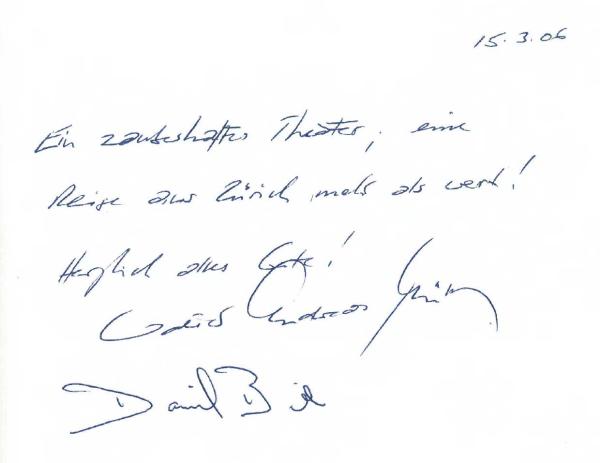 15.3.06
Ein zauberhaftes Theater, eine
Reise aus Zürich mehr als wert!
Herzlich alles Gute!
Andreas
Daniel